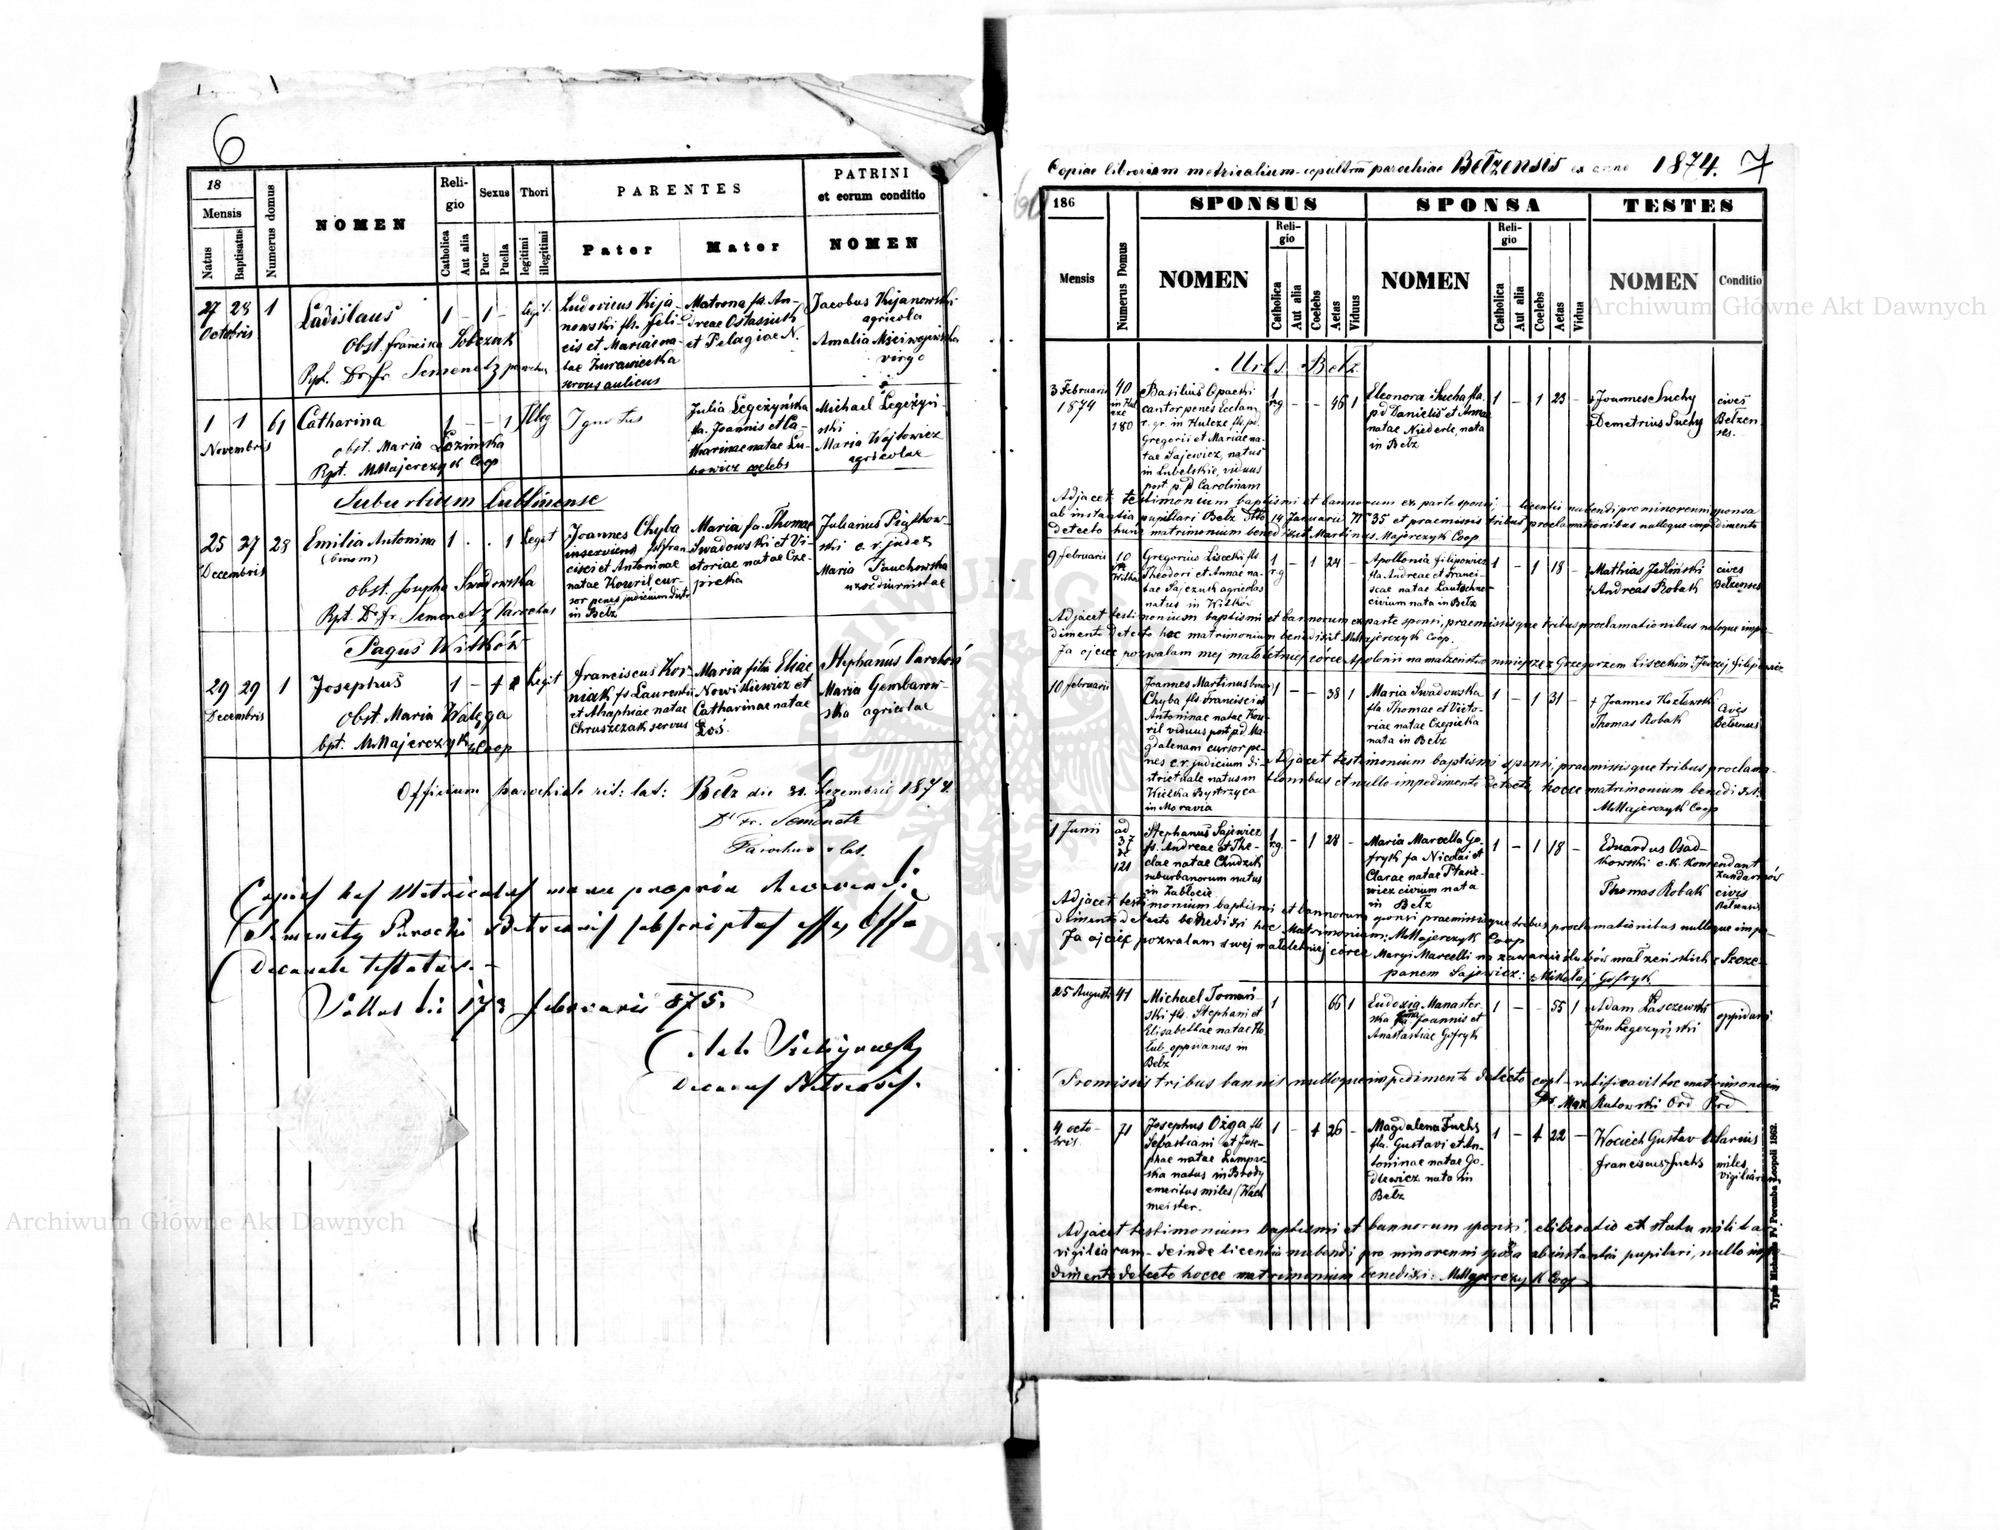 6
18
Mensis
Natus
Baptisatus
Numerus domus
NOMEN
Reli-
gio
Catholica
Aut alia
Sexus
Puer
Puella
Thori
legitimi
illegitimi
PARENTES
Pater
Mater
PATRINI
et eorum conditio
NOMEN
27 28 1
Octobris
Ladislaus
Obst. Francisca Sobczuk
Bpt. Dr Fr. Semenetz parochus
1 - 1 - legit.
Ludovicus Kija-
nowski fls. Feli-
cis et Mariae na-
tae Zurawiecka
servus aulicus
Matrona fla. An-
dreae Ostasiuk
et Pelagiae N.
Jacobus Kijanowski
agricola
Amalia
virgo
1 1 61
Novembris
Catharina
obst. Maria Lozinska
Bpt. M Majerczyk Coop
1 - - 1 Illeg
Ignotus
Julia Legeżyńska
fla. Joannis et Ca-
tharinae natae Lu-
bowicz coelebs
Michael Legeżyń-
ski
Maria Wojtowicz
agricolae
Suburbium Lublinense
25 27 28
Decembris
Emilia Antonina
(binom)
obst. Josepha Swadowska
Bpt. Dr Fr. Semenetz Parochus
1 . . 1 Legit
Joannes Chyba
inserviens fls Fran
cisci et Antoninae
natae Kouril cur-
sor penes judicium distr
in Bełz
Maria fa. Thomae
Swadowski et Vi-
ctoriae natae Cze-
piecka
Julianus Piątkow-
ski c. r. judex
Maria Pauchowska
uxor diurnistae
Pagus Witków
29 29 1
Decembris
Josephus
Obst Maria Walęga
bpt. M Majerczyk Coop
1 - 1 Legit
Franciscus Kor
niak fs Laurentii
et Ahaphiae natae
Chruszczak servus
Maria filia Eliae
Nowikiewicz et
Catharinae natae
Łoś.
Stephanus Parchoń
Maria Gembarow-
ska agricolae
Officium parochiale rit: lat: Bełz die 31 Decembris 1874.
Dr Fr. Semenetz
Parochus r. lat.
Copias has Metricales manu propria Reverendi
Semenetz Parochi Belzensis subscriptas esse Offo
Decanale testatur. -
1873 Februaris 875.
Decanus Belzensis.
Copiae librorum metricalium copulatorum parochiae Bełzensis ex anno 1874. 7
186
Mensis
Numerus Domus
SPONSUS
NOMEN
Reli-
gio
Catholica
Aut alia
Coelebs
Aetas
Viduus
SPONSA
NOMEN
Reli-
gio
Catholica
Aut alia
Coelebs
Aetas
Vidua
TESTES
NOMEN
Conditio
Urbs Bełz
3 Februarii
1874
40
in Hul
cze
180
Basilius Opacki
cantor penes Eccleam
r. gr. in Hulcze fls. pd.
Gregorii et Mariae na-
tae Sajewicz, natus
in Lubelskie, viduus
post p. d Carolinam
1
r.g - - 46 1
Eleonora Sucha fla.
pd Danielis et Annae
natae Niederle, nata
in Bełz
1 - 1 23 -
+ Joannes Suchy
+ Demetrius Suchy
cives
Bełzen-
ses.
Adjacet testimonium baptismi et bannorum ex parte sponsi, - licentia nubendi pro minorenni sponsa
ab instantia pupillari Bełz dto 14 Januarii N 35 et praemissis tribus proclamationibus nulloque impedimento
detecto hunc matrimonium benedixit Martinus Majerczyk Coop
9 Februarii
10
in
Witków
Gregorius Lisecki fls
Theodori et Annae na-
tae Sajczuk agricolae
natus in Witków
1
r.g - 1 24 -
Apollonia Filipowicz
fla Andreae et Franci-
scae natae Lautschne-
civium nata in Bełz
1 - 1 18 -
+ Mathias Jedliński
+ Andreas Robak
cives
Bełzenses
Adjacet testimonium baptismi et bannorum ex parte sponsi, praemissisque tribus proclamationibus nulloque impe-
dimento detecto hoc matrimonium benedixit M Majerczyk Coop.
Ja ojciec pozwalam mej małoletniej córce Apolonii na małżeństwo niniejsze z Grzegorzem Liseckim: Jędrzej Filipowicz
10 Februarii
Joannes Martinus binom
Chyba fls Francisci et
Antoninae natae Kou
ril viduus post pd Ma-
gdalenam cursor pe-
nes c.r. judicium di-
strictuale natus in
Wielka Bystrzyca
in Moravia
1 - - 38 1
Maria Swadowska
fla Thomae et Victo-
riae natae Czepiecka
nata in Bełz
1 - 1 31 -
+ Joannes Kozłowski
Thomas Robak
Cives
Bełzenses
Adjacet testimonium baptismi sponsi, praemissisque tribus proclama-
tionibus et nullo impedimento detecto, hocce matrimonium benedixit.
M Majerczyk Coop
1 Junii
ad
37
de
121
Stephanus Sajewicz
fs. Andreae et The-
clae natae Chudzik
suburbanorum natus
in Zabłocie
1
r.g. - 1 28 -
Maria Marcella Go-
fryk fa Nicolai et
Clarae natae Ptasie-
wicz civium nata
in Bełz
1 - 1 18 -
Eduardus Osad-
kowski c. k. komendant
żandarmów
Thomas Robak cives
Bełzensis
Adjacet testimonium baptismi et bannorum sponsi praemissisque tribus proclamationibus nulloque impe-
dimento detecto benedixi hoc Matrimonium: M Majerczyk Coop
Ja ojciec pozwalam swej małoletniej córce Maryi Marcelli na zawarcie ślubów małżeńskich z Szcze-
panem Sajewicz: + Mikołaj Gofryk
25 Augusti 41
Michael Tomań
ski fls. Stephani et
Elisabethae natae Ho
łub oppidanus in
Bełz
1 66 1
Eudoxia Manaster
ska fla Joannis et
Anastasiae Gofryk
1 - - 55 1
+ Adam Łaszczewski
+ Jan Legeżyński
oppidani
Promissis tribus bannis nulloque impedimento detecto copl - ratificavit hoc matrimonium
Fr. Max Rutowski Ord Prd
4 octo-
bris.
71
Josephus Ożga fls.
Sebastiani et Jose-
phae natae Lampe-
ska natus in Brody
emeritus miles (Wach
meister.
1 - 1 26 -
Magdalena Fuchs
fla. Gustavi et An-
toninae natae Go-
dlewicz nata in
Bełz
1 - 1 22 -
Wociech Gustav
Franciscus Fuchs
miles
vigiliarum
Adjacet testimonium baptismi et bannorum sponsi, eliberatio et statu militari
vigiliarum - deinde licentia nubendi pro minorenni spsa ab instantia pupilari, nullo impe-
dimento detecto hocce matrimonium benedixi: M Majerczyk Coop
Typis Michaelis F. Poremba Leopoli 1862.
Archiwum Główne Akt Dawnych
Archiwum Główne Akt Dawnych
ARCHIWUM GŁÓWNE AKT DAWNYCH